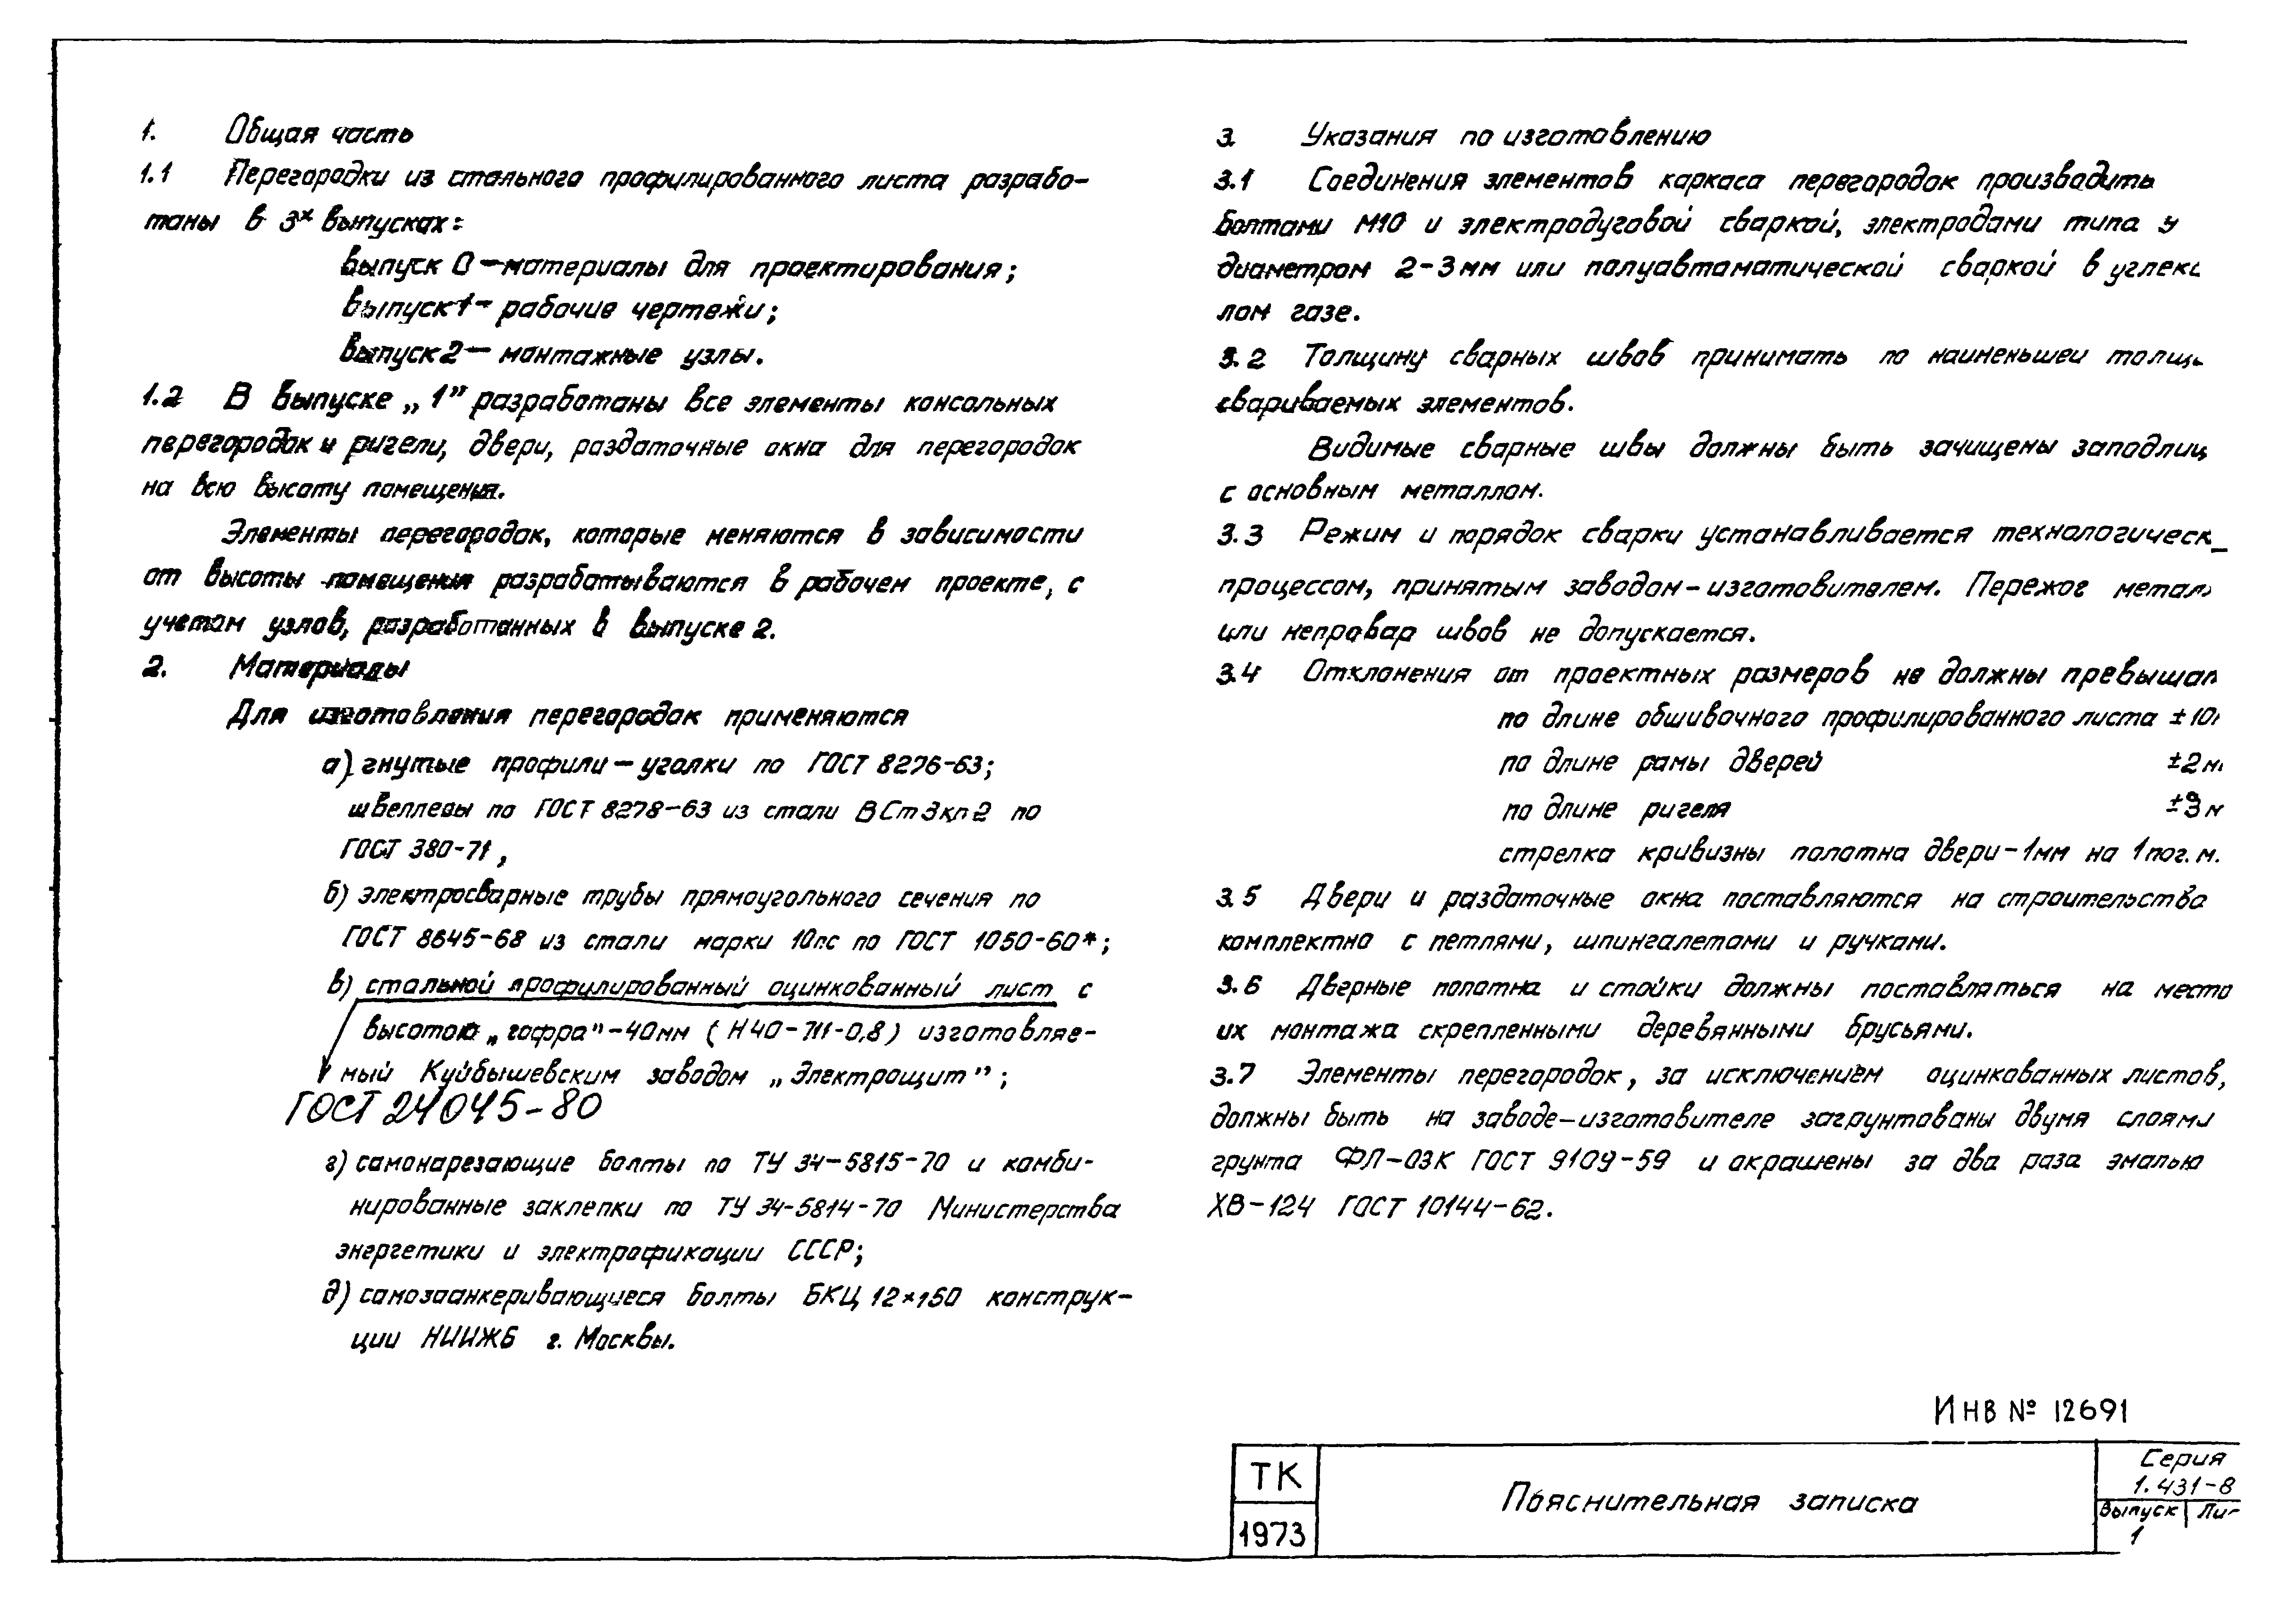 1. Общая часть
1.1 Перегородки из стального профилированного листа разрабо-
таны в 3х выпусках:
выпуск 0 – материалы для проектирования;
выпуск 1 – рабочие чертежи;
выпуск 2 – монтажные узлы.
1.2 В выпуске „1” разработаны все элементы консольных
перегородок и ригели, двери, раздаточные окна для перегородок
на всю высоту помещения.
Элементы перегородок, которые меняются в зависимости
от высоты помещения разрабатываются в рабочем проекте, с
учетом узлов, разработанных в выпуске 2.
2. Материалы
Для изготовления перегородок применяются
а) гнутые профили – уголки по ГОСТ 8276-63;
швеллеры по ГОСТ 8278-63 из стали ВСт3кп2 по
ГОСТ 380-71,
б) электросварные трубы прямоугольного сечения по
ГОСТ 8645-68 из стали марки 10пс по ГОСТ 1050-60*;
в) стальной профилированный оцинкованный лист с
высотою „гофра” - 40мм (Н40-711-0,8) изготовляе-
мый Куйбышевским заводом „Электрощит”;
ГОСТ 24045-80
г) самонарезающие болты по ТУ 34-5815-70 и комби-
нированные заклепки по ТУ 34-5814-70 Министерства
энергетики и электрофикации СССР;
д) самозаанкеривающиеся болты БКЦ 12×150 конструк-
ции НИИЖБ г. Москвы.
3 Указания по изготовлению
3.1 Соединения элементов каркаса перегородок производить
болтами М10 и электродуговой сваркой, электродами типа У
диаметром 2-3мм или полуавтоматической сваркой в углекс
лом газе.
3.2 Толщину сварных швов принимать по наименьшей толщ
свариваемых элементов.
Видимые сварные швы должны быть зачищены заподлиц
с основным металлом.
3.3 Режим и порядок сварки устанавливается технологическ
процессом, принятым заводом-изготовителем. Пережог метал
или непровар швов не допускается.
3.4 Отклонения от проектных размеров не должны превышат
по длине обшивочного профилированного листа ±10
по длине рамы дверей ±2м
по длине ригеля ±3м
стрелка кривизны полотна двери - 1мм на 1пог. м.
3.5 Двери и раздаточные окна поставляются на строительства
комплектно с петлями, шпингалетами и ручками.
3.6 Дверные полотна и стойки должны поставляться на место
их монтажа скрепленными деревянными брусьями.
3.7 Элементы перегородок, за исключением оцинкованных листов,
должны быть на заводе-изготовителе загрунтованы двумя слоями
грунта ФЛ-03К ГОСТ 9109-59 и окрашены за два раза эмалью
ХВ-124 ГОСТ 10144-62.
Инв № 12691
ТК
1973
Пояснительная записка
Серия
1.431-8
Выпуск Ли
1